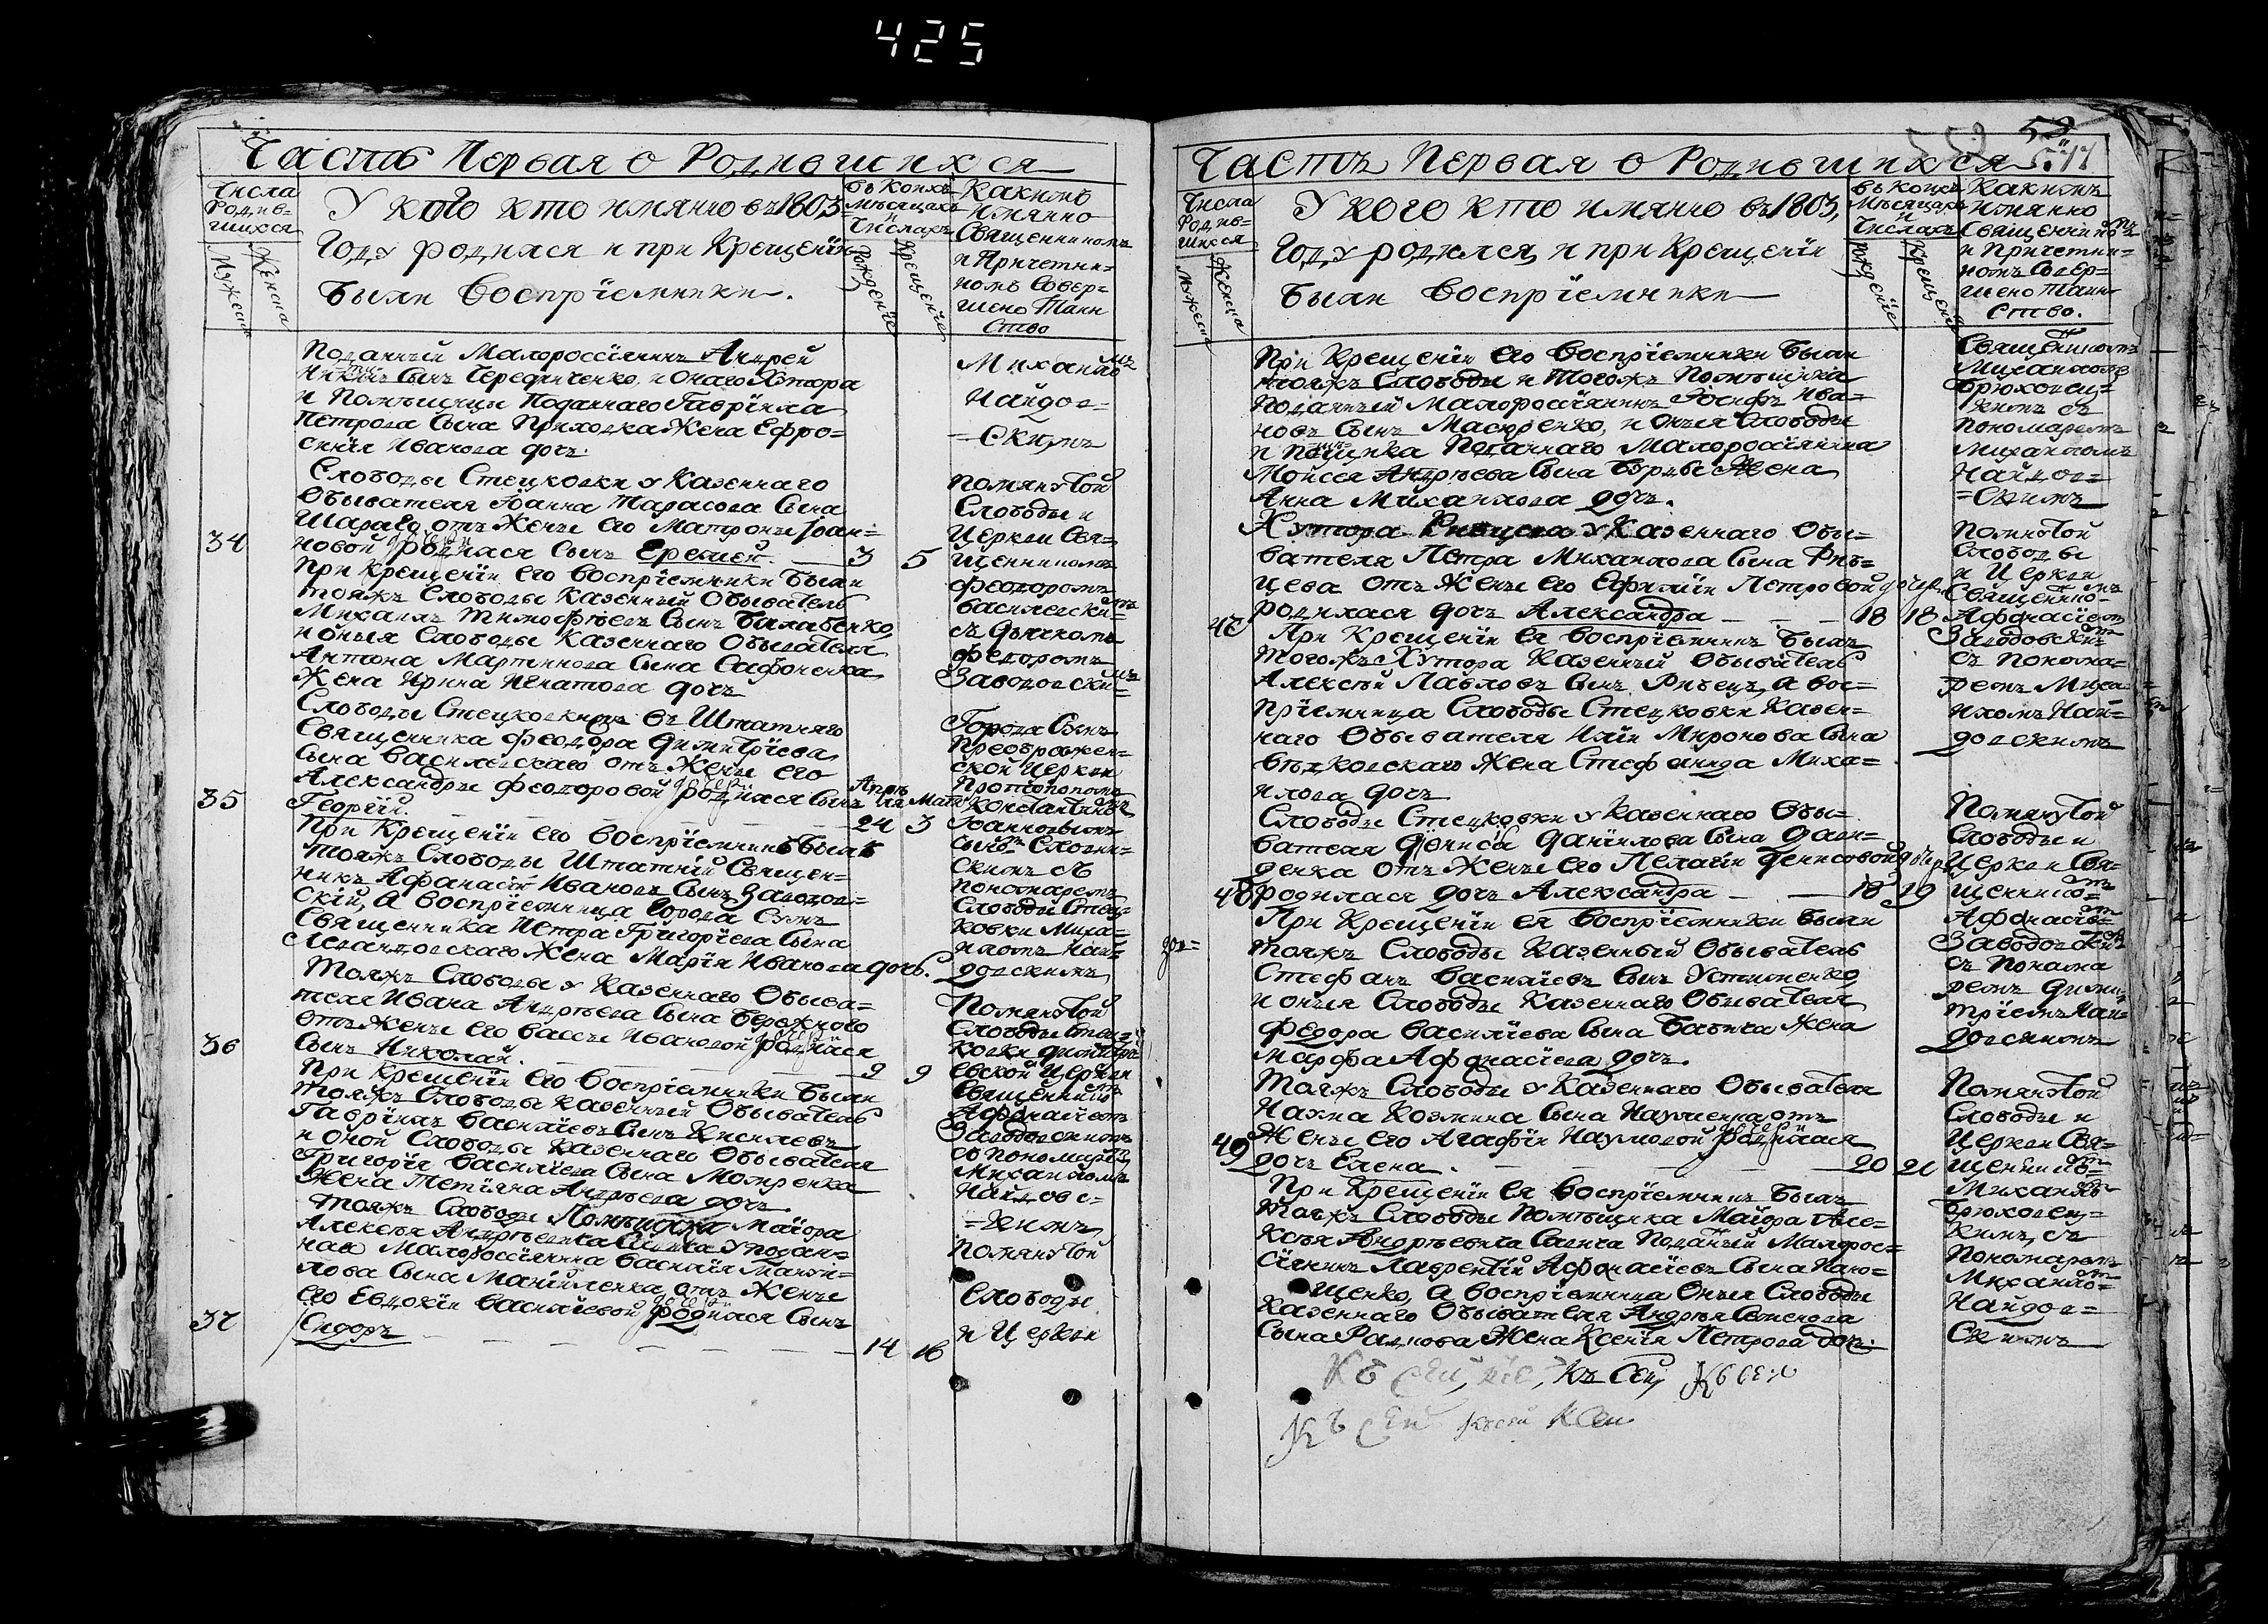 425
Часть Первая о Родившихся
Числа Родившихся
Мужеска
Женска
У кого кто имянно въ 1803
Году родился и при Крещеніи
были воспріемники.
въ коихъ
мѣсяцахъ
и
Числахъ
Рожденіе
Крещеніе
Какимъ
имянно
Священникомъ
и Причетни=
комъ Совер=
шено Таин
ство
Поданный Малороссіянинъ Андрей
Никитинъ Сынъ Чередниченко, и онаго Хутора
и Помѣщицы Поданнаго Гаврiила
Петрова Сына Приходка Жена Ефро=
синія Иванова дочь.
Михаиломъ
Найдов=
=скимъ
Слободы Стецковки у Казеннаго
Обывателя Іоанна Тарасова Сына
Шараго отъ Жены его Матроны Іоан=
34 новой родился Сынъ Еремей. 3 5
При Крещеніи его воспріемники были
тояжъ Слободы Казенный Обыватель
Михаилъ Тимофѣевъ Сынъ
и оныя Слободы Казеннаго Обывателя
Антона Мартинова Сына Сафоненка
Жена Ирина Игнатова дочь
помянутой
Слободы и
Церкви Свя=
щенникомъ
Феодоромъ
Василевскимъ
съ дьячкомъ
Федоромъ
Заводовскимъ
Слободы Стецковки въ Штатняго
Священника Феодора Димитріева
Сына Василевскаго отъ Жены его
Александры Феодоровой родился Сынъ
35 Георгій. Апрѣля 24 Маія 3
При Крещеніи его воспріемникъ былъ
тояжъ Слободы Штатній Священ=
никъ Афанасій Ивановъ Сынъ Заводов=
скій, а воспріемница Города Сумъ
Священника Петра Григоріева Сына
Левандовскаго Жена Марія Иванова дочь.
Города Сумъ
Преображен=
ской Церкви
Протопопомъ
Константиномъ
Іоанновымъ
скимъ съ
пономаремъ
Слободы Стец=
ковки Миха=
иломъ Най=
довскимъ
Тояжъ Слободы у Казеннаго Обыва=
теля Ивана Андрѣева Сына Бережного
отъ Жены его Вассы Ивановой родился
36 Сынъ Николай. 9 9
При Крещеніи его воспріемники были
тояжъ Слободы казенный Обыватель
Гавріилъ Василіевъ Сынъ Киселевъ
и оной Слободы Казеннаго Обывателя
Григорія Василіева Сына
Жена Тетіяна Андрѣева дочь
Помянутой
Слободы Стец=
ковки Димитрі
евской Церкви
Священникомъ
Афанасіемъ
Заводовскимъ
съ пономаремъ
Михаиломъ
Найдовс=
=кимъ
Тояжъ Слободы Помѣщика Маіора
Алексѣя Андрѣевича Савича у подан=
наго Малороссіянина Василія Мануи=
лова Сына Мануйленка отъ Жены
его Евдокіи Василіевой родился Сынъ
37 Сидоръ 14 16
Помянутой
Слободы
и Церкви
Часть Первая о Родившихся
559
52
Числа
Родив=
шихся
Мужеска
Женска
У кого кто имянно въ 1803,
Году родился, и при Крещеніи
были воспріемники
въ коихъ
Мѣсяцахъ
и
Числахъ
рожденіе
Крещеніе
Какимъ
имянно
Священникомъ
и Причетни=
комъ Совер=
шено Таин
ство.
При Крещеніи его воспріемники были
тояжъ Слободы и тогожъ Помѣщика
Поданный Малороссіянинъ Іосифъ Ива=
новъ Сынъ Масюренко, и оныя Слободы
и Помѣщика Поданнаго Малороссіянина
Моисея Андрѣева Сына Бурды Жена
Анна Михайлова дочь.
Священникомъ
Михаиломъ
Брюховец=
кимъ съ
пономаремъ
Михаиломъ
Найдов=
=скимъ
Хутора Рибцева у Казеннаго Обы=
вателя Петра Михайлова Сына Рыб=
цева отъ Жены его Ефиміи Петровой дочери
родилася дочь Александра 18 18
При Крещеніи ея воспріемникъ былъ
тогожъ Хутора Казенный Обыватель
Алексѣй Павловъ Сынъ Рибецъ, а вос=
пріемница Слободы Стецковки Казен=
наго Обывателя Иліи Миронова Сына
Жена Стефанида Миха=
йлова дочь
Помянутой
Слободы
и Церкви
Священникомъ
Афанасіемъ
Заводовскимъ
съ понома=
ремъ Миха=
иломъ Най=
довскимъ
Слободы Стецковки у Казеннаго Обы=
вателя Дениса Даніилова Сына
денка отъ Жены его Пелагіи Денисовой дочери
48 родилася дочь Александра 18 19
При Крещеніи ея воспріемники были
тояжъ Слободы Казенный Обыватель
Стефанъ Василіевъ Сынъ Устименко
и оныя Слободы Казеннаго Обывателя
Федора Василіева Сына Бабича Жена
Марфа Афанасіева дочь.
Помянутой
Слободы и
Церкви Свя=
щенникомъ
Афанасіемъ
Заводовскимъ
съ понома
ремъ Дими
тріемъ Най=
довскимъ
Тояжъ Слободы у Казеннаго Обывателя
Наума Козмина Сына Науменка отъ
Жены его Агафіи Наумовой родилася
49 дочь Елена. 20 21
При Крещеніи ея воспріемникъ былъ
тояжъ Слободы Помѣщика Маіора Але=
ксѣя Андрѣевича Савича Поданный Малорос=
сіянинъ Лаврентій Афанасіевъ Сынъ
щенко, а воспріемница оныя Слободы
Казеннаго Обывателя Андрѣя Семенова
Сына Раднова Жена Ксенія Петрова дочь.
Помянутой
Слободы и
Церкви Свя=
щенникомъ
Михаиломъ
Брюховец=
кимъ, съ
Пономаремъ
Михаиломъ
Найдов=
скимъ
Къ сей, къ сей, Къ сей
Къ сей къ сей